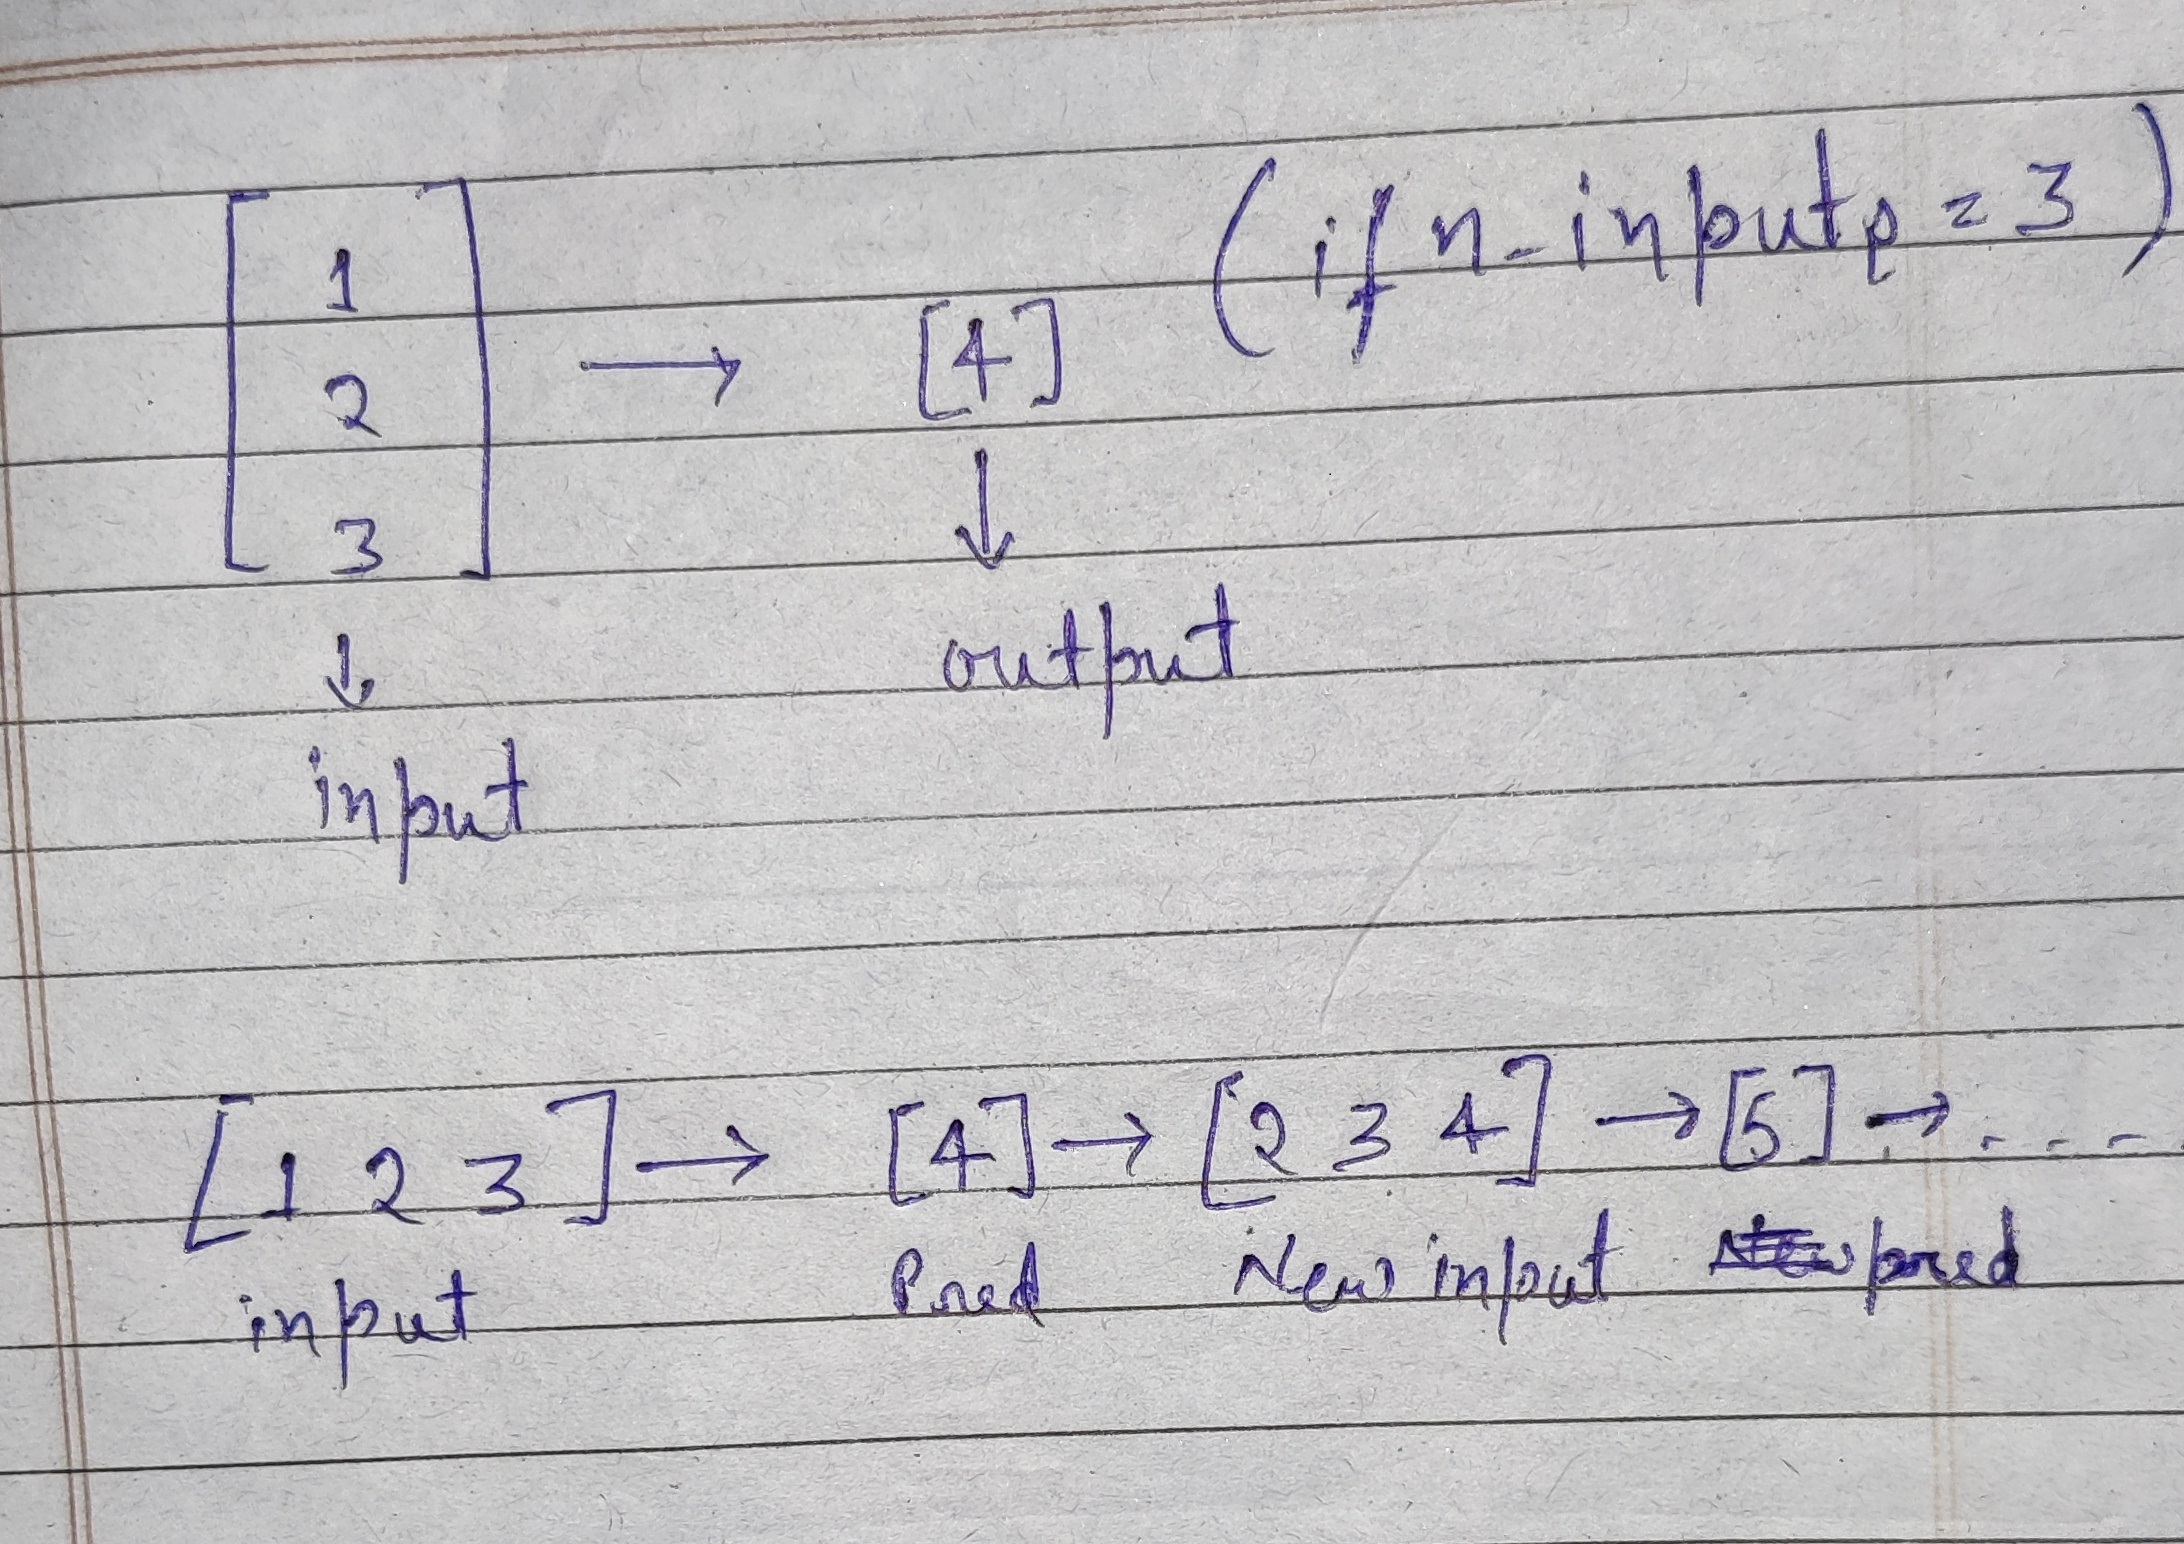 [1 2 3] → [4] (if n-inputs = 3)
↓ ↓
output
input
[1 2 3] → [4] → [2 3 4] → [5] → .....
input Pred New input pred